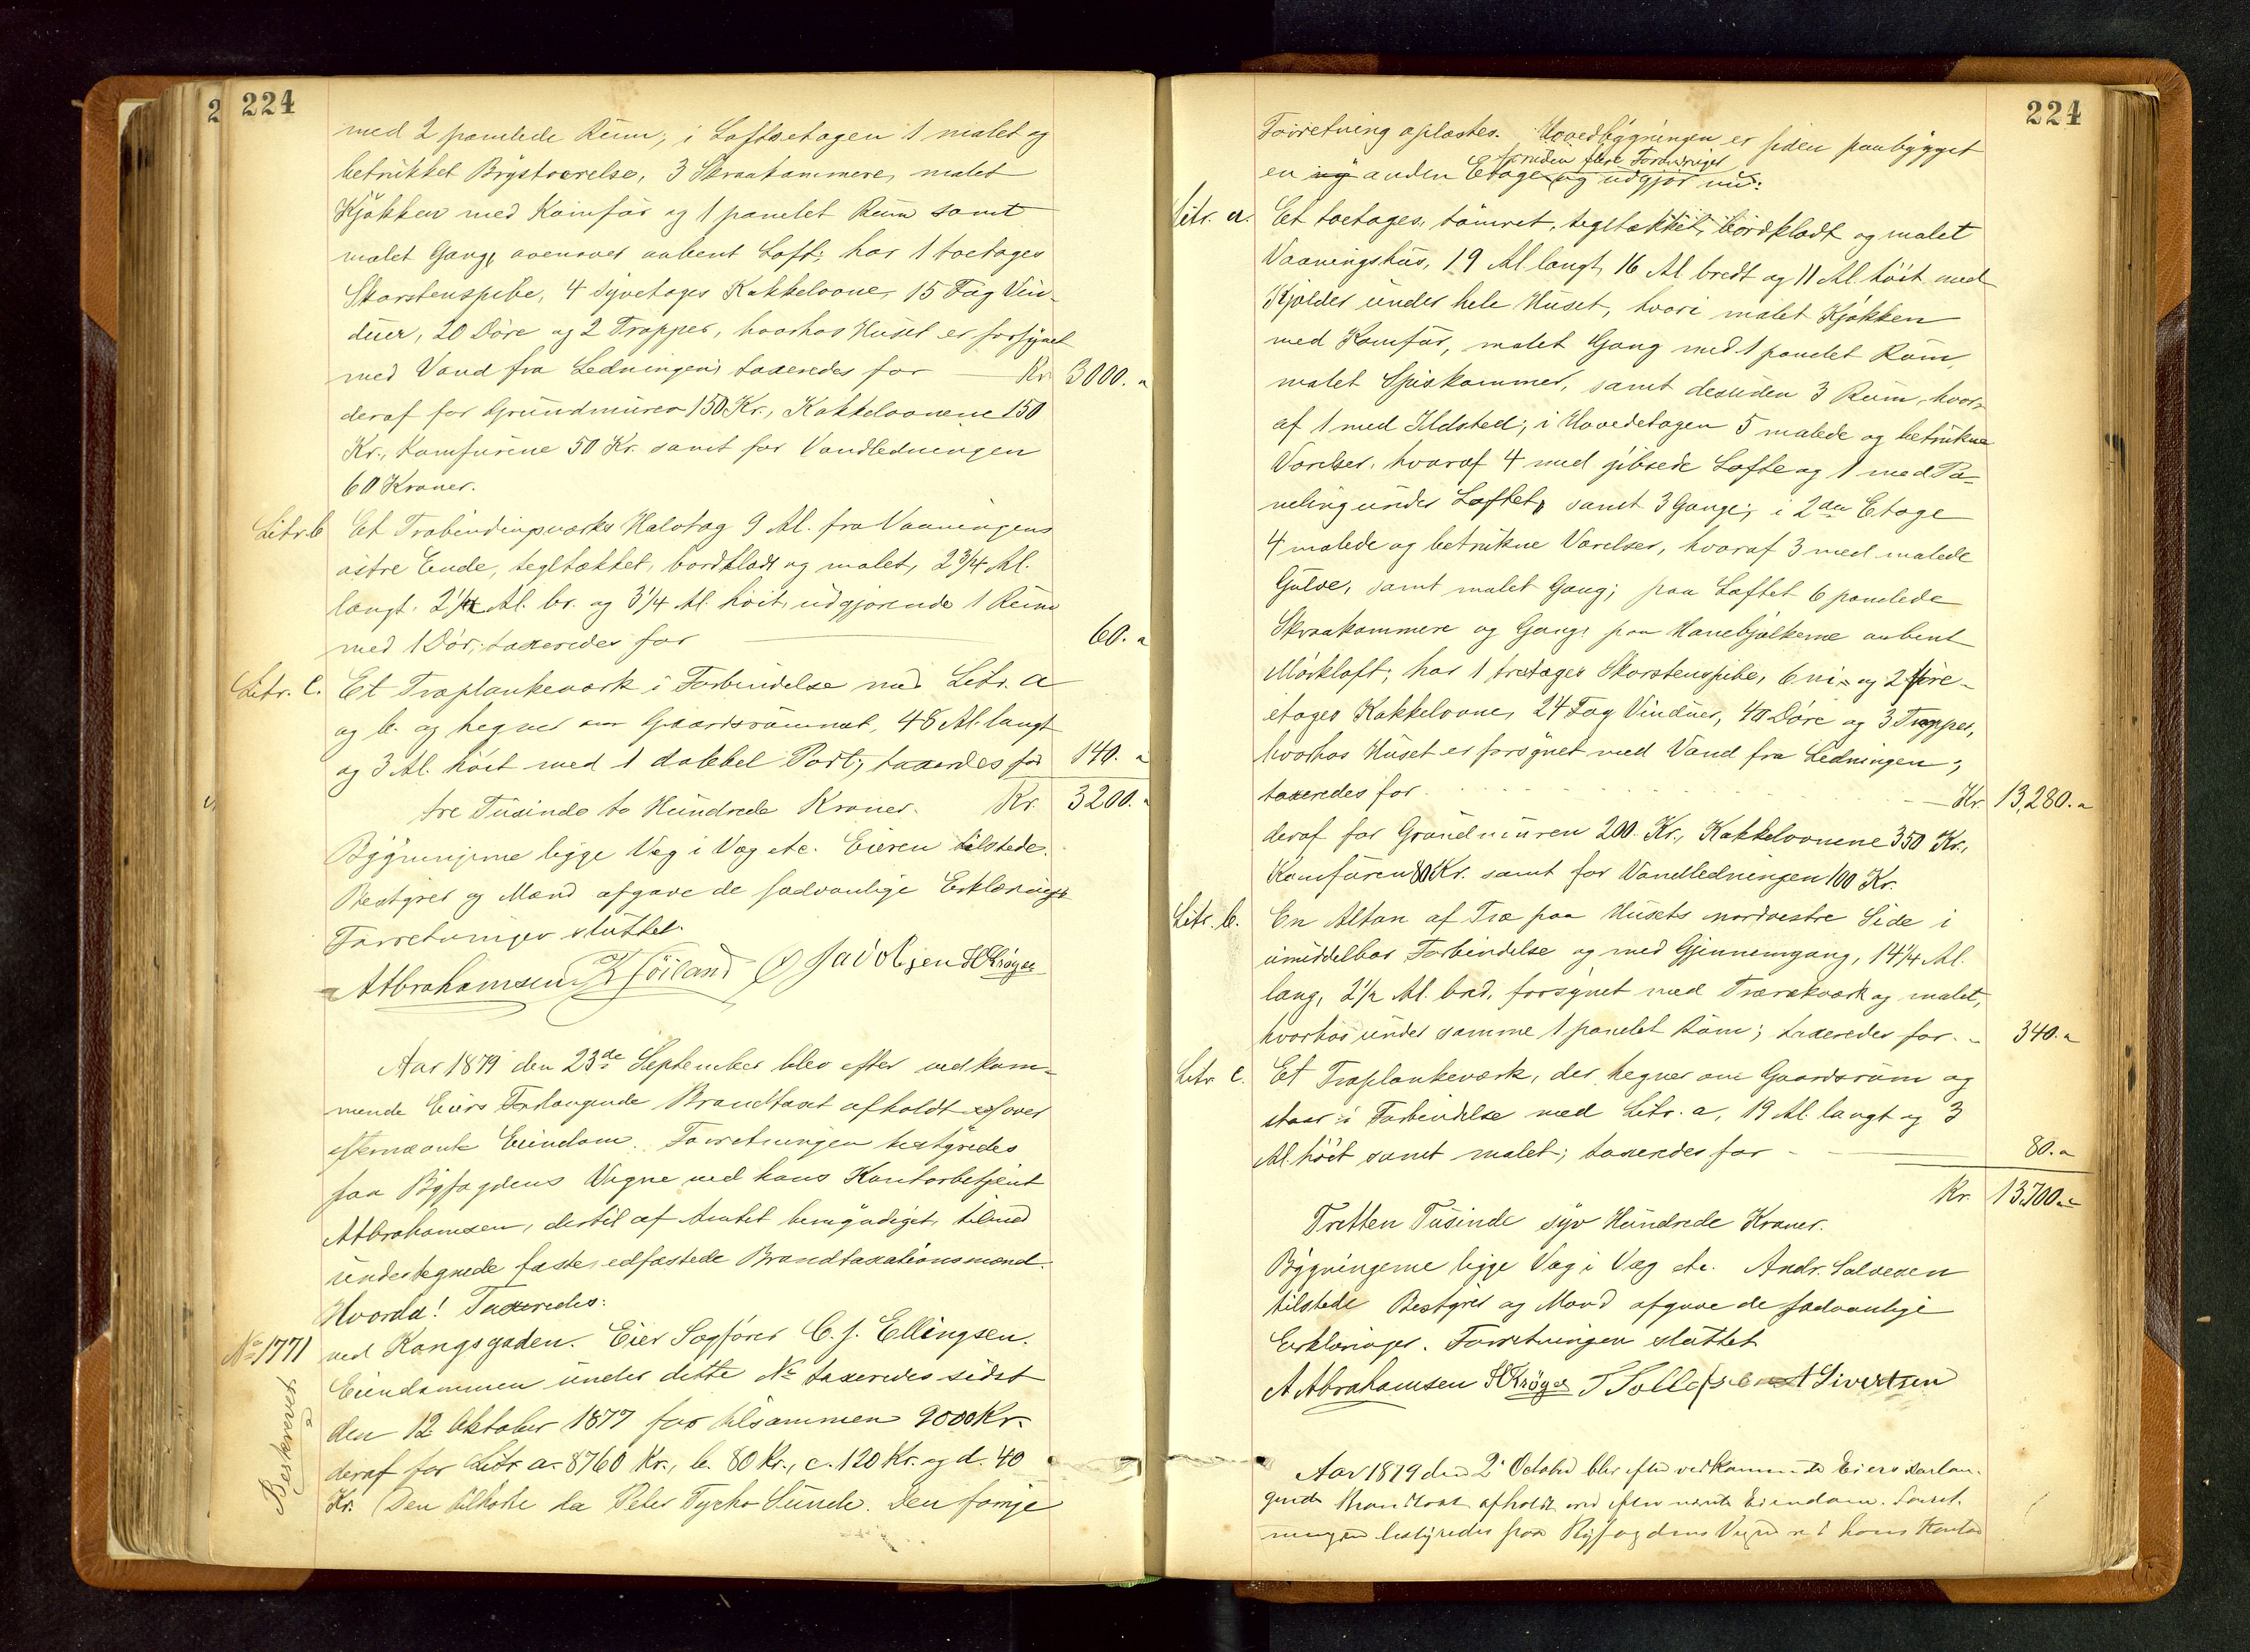 224
med 2 panelede Rum; i Loftsetagen 1 malet og
betrukket Brystværelse, 3 Skraakammere, malet
Kjøkken med Komfur og 1 panelet Rum samt
malet Gang, ovenover aabent Loft; har 1 toetages
Skorstenspibe, 4 syvetages Kakkelovne, 15 Fag Vin-
duer, 20 Døre og 2 Trapper, hvorhos Huset er forsynet
med Vand fra Ledningen; taxeredes for — Kr. 3000. "
deraf for Grundmuren 150 Kr., Kakkelovnene 150
Kr., Komfurene 50 Kr. samt for Vandledningen
60 Kroner.
Litr. b Et Træbindingsværks Halvtag 9 Al. fra Vaaningens
østre Ende, tegltækket, bordklædt og malet, 2 3/4 Al.
langt, 2 1/4 Al. br. og 3 1/4 Al. høit, udgjørende 1 Rum
med 1 Dør; taxeredes for — 60. "
Litr. C. Et Træplankeværk i Forbindelse med Litr. a
og b. og hegner om Gaardsrummet, 48 Al. langt
og 3 Al. høit med 1 dobbel Port; taxeredes for 140. "
tre Tusinde to Hundrede Kroner. Kr. 3200. "
Bygningerne ligge Væg i Væg etc. Eieren tilstede.
Bestyrer og Mænd afgave de sædvanlige Erklæringer
Forretningen sluttet.
A Abrahamsen Jacobsen H Krøger
Aar 1879 den 23de September blev efter vedkom-
mende Eiers Forlangende Brandtaxt afholdt over
efternævnte Eiendom. Forretningen bestyredes
paa Byfogdens Vegne ved hans Kontorbetjent
Abrahamsen, dertil af Amtet bemyndiget, tilmed
undertegnede faste, edfæstede Brandtaxationsmænd.
Hvorda! Taxeredes:
No 1771 ved Kongsgaden. Eier Sagfører C. J. Ellingsen.
Eiendommen under dette No taxeredes sidst
den 12 Oktober 1877 for tilsammen 9000 Kr.
deraf for Litr a. 8760 Kr., b. 80 Kr., c. 120 Kr. og d. 40
Kr. Den tilhørte da Peter Tycho Sunde. Den forrige
Beskrevet
224
Forretning oplæstes. Hovedbygningen er siden paabygget
foruden flere Forandringer
en ny anden Etage og udgjør nu:
Litr. a. Et toetages, tømret, tegltækket, bordklædt og malet
Vaaningshus, 19 Al. langt, 16 Al bredt og 11 Al. høit med
Kjælder under hele Huset, hvori malet Kjøkken
med Komfur, malet Gang med 1 panelet Rum,
malet Spiskammer, samt desuden 3 Rum, hvor-
af 1 med Ildsted; i Hovedetagen 5 malede og betrukne
Værelser, hvoraf 4 med gibsede Lofte og 1 med Pa-
neling under Loftet, samt 3 Gange; i 2den Etage
4 malede og betrukne Værelser, hvoraf 3 med malede
Gulve, samt malet Gang; paa Loftet 6 panelede
Skraakammere og Gang; paa Hanebjælkerne aabent
Mørkloft; har 1 tretages Skorstenspibe, 6 ni- og 2 fire-
etages Kakkelovne, 24 Fag Vinduer, 40 Døre og 3 Trapper,
hvorhos Huset er forsynet med Vand fra Ledningen;
taxeredes for — Kr. 13,280. "
deraf for Grundmuren 200 Kr., Kakkelovnene 350 Kr.,
Komfuren 80 Kr. samt for Vandledningen 100 Kr.
Litr. b. En Altan af Træ paa Husets nordvestre Side i
umiddelbar Forbindelse og med Gjennemgang, 14 1/4 Al.
lang, 2 1/2 Al. bred, forsynet med Trærækværk og malet,
hvorhos under samme 1 panelet Rum; taxeredes for. " 340. "
Litr. C. Et Træplankeværk, der hegner om Gaardsrum og
staar i Forbindelse med Litr. a, 19 Al. langt og 3
Al. høit samt malet; taxeredes for — 80. "
Kr. 13,700. "
Tretten Tusinde syv Hundrede Kroner.
Bygningerne ligge Væg i Væg etc. Andr. Salvesen
tilstede Bestyrer og Mænd afgave de sædvanlige
Erklæringer. Forretningen sluttet
A Abrahamsen H Krøger T Tollefsen A Sivertsen
Aar 1879 den 2. October blev efter vedkommende Eiers Forlan-
gende Brandtaxt afholdt over efternævnte Eiendom. Forret-
ningen bestyredes paa Byfogdens Vegne ved hans Kontor